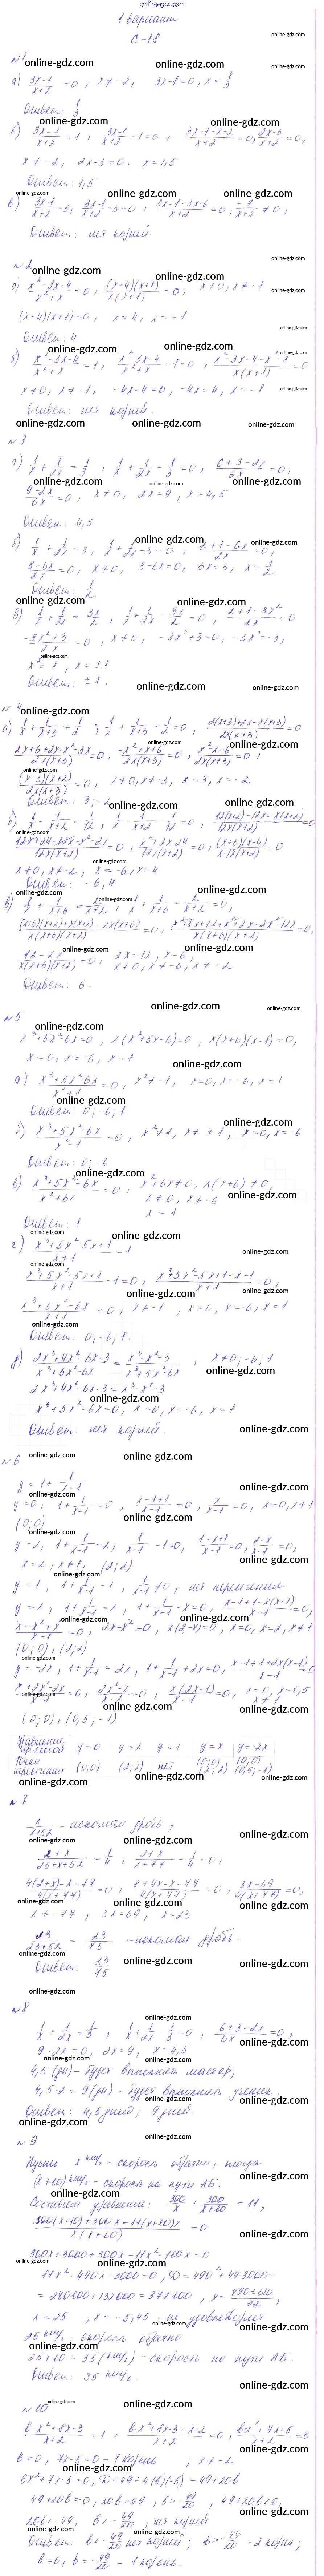 1 вариант
С-18
N1
а) (3x-1)/(x+2) = 0, x ≠ -2, 3x-1=0, x = 1/3
Ответ: 1/3
б) (3x-1)/(x+2) = 1, (3x-1)/(x+2) - 1 = 0, (3x-1-x-2)/(x+2) = 0, (2x-3)/(x+2) = 0,
x ≠ -2, 2x-3=0, x = 1,5
Ответ: 1,5
в) (3x-1)/(x+2) = 3, (3x-1)/(x+2) - 3 = 0, (3x-1-3x-6)/(x+2) = 0,
Ответ: нет корней
N2
а) (x²-3x-4)/(x²+x) = 0, (x-4)(x+1)/(x(x+1)) = 0, x ≠ 0, x ≠ -1
(x-4)(x+1)=0, x=4, x=-1
Ответ: 4
б) (x²-3x-4)/(x²+x) = 1, (x²-3x-4)/(x²+x) - 1 = 0, (x²-3x-4-x²-x)/(x(x+1)) = 0
x ≠ 0, x ≠ -1, -4x-4=0, -4x=4, x=-1
Ответ: нет корней.
N3
а) 1/x + 1/2x = 1/3, 1/x + 1/2x - 1/3 = 0, (6+3-2x)/6x = 0,
(9-2x)/6x = 0, x ≠ 0, 2x=9, x=4,5
Ответ: 4,5
б) 1/x + 1/2x = 3, 1/x + 1/2x - 3 = 0, (2+1-6x)/2x = 0,
(3-6x)/2x = 0, x ≠ 0, 3-6x=0, 6x=3, x = 1/2
Ответ: 1/2
в) 1/x + 1/2x = 3x/2, 1/x + 1/2x - 3x/2 = 0, (2+1-3x²)/2x = 0
(-3x²+3)/2x = 0, x ≠ 0, -3x²+3=0, -3x²=-3,
x² = 1, x = ±1
Ответ: ±1.
N4
а) 1/x + 1/(x+3) = 1/2, 1/x + 1/(x+3) - 1/2 = 0, (2(x+3)+2x-x(x+3))/(2x(x+3)) = 0
(2x+6+2x-x²-3x)/(2x(x+3)) = 0, (-x²+x+6)/(2x(x+3)) = 0, (x²-x-6)/(2x(x+3)) = 0,
(x-3)(x+2)/(2x(x+3)) = 0, x ≠ 0, x ≠ -3, x=3, x=-2
Ответ: 3; -2
б) 1/x - 1/(x+2) = 1/12, 1/x - 1/(x+2) - 1/12 = 0, (12(x+2)-12x-x(x+2))/(12x(x+2)) = 0
(12x+24-12x-x²-2x)/(12x(x+2)) = 0, (x²+2x-24)/(12x(x+2)) = 0, (x+6)(x-4)/(x·12(x+2)) = 0
x ≠ 0, x ≠ -2, x=-6, x=4
Ответ: -6; 4
в) 1/x + 1/(x+6) = 2/(x+2), 1/x + 1/(x+6) - 2/(x+2) = 0,
Ответ: 6.
N5
x³+5x²-6x=0, x(x²+5x-6)=0, x(x+6)(x-1)=0,
x=0, x=-6, x=1
а) (x³+5x²-6x)/(x²+1) = 0, x² ≠ -1, x=0, x=-6, x=1
Ответ: 0; -6; 1
б) (x³+5x²-6x)/(x²-1) = 0, x² ≠ 1, x ≠ ±1, x=0, x=-6
Ответ: 0; -6
в) (x³+5x²-6x)/(x²+6x) = 0, x²+6x ≠ 0, x(x+6) ≠ 0,
x ≠ 0, x ≠ -6
x = 1
Ответ: 1
г) (x³+5x²-5x+1)/(x+1) = 1
(x³+5x²-5x+1)/(x+1) - 1 = 0, (x³+5x²-5x+1-x-1)/(x+1) = 0,
(x³+5x²-6x)/(x+1) = 0, x ≠ -1, x=0, x=-6, x=1
Ответ: 0; -6; 1.
д) (2x³+4x²-6x-3)/(x³+5x²-6x) = (x³-x²-3)/(x³+5x²-6x), x ≠ 0; -6; 1
2x³+4x²-6x-3 = x³-x²-3
x³+5x²-6x=0, x=0, x=-6, x=1
Ответ: нет корней.
N6
y = 1 + 1/(x-1)
y=0, 1 + 1/(x-1) = 0, (x-1+1)/(x-1) = 0, x/(x-1) = 0, x=0, x ≠ 1
(0; 0)
y=2, 1 + 1/(x-1) = 2, 1/(x-1) - 1 = 0, (1-x+1)/(x-1) = 0, (2-x)/(x-1) = 0,
x=2, x ≠ 1, (2; 2)
y=1, 1 + 1/(x-1) = 1, 1/(x-1) ≠ 0, нет пересечения
y=x, 1 + 1/(x-1) = x, 1 + 1/(x-1) - x = 0, (x-1+1-x(x-1))/(x-1) = 0,
(x-x²+x)/(x-1) = 0, 2x-x²=0, x(2-x)=0, x=0, x=2, x ≠ 1
(0; 0), (2; 2)
y=-2x, 1 + 1/(x-1) = -2x, 1 + 1/(x-1) + 2x = 0, (x-1+1+2x(x-1))/(x-1) = 0
(x+2x²-2x)/(x-1) = 0, (2x²-x)/(x-1) = 0, x(2x-1)/(x-1) = 0, x=0, x=0,5
x ≠ 1
(0; 0), (0,5; -1)
Уравнение прямой y=0 y=2 y=1 y=x y=-2x
Точки пересечения (0;0) (2;2) нет (0;0) (2;2) (0;0) (0,5;-1)
N7
x/(x+52) - искомая дробь,
(2+x)/(25+x+52) = 1/4, (2+x)/(x+77) - 1/4 = 0,
(4(2+x)-x-77)/(4(x+77)) = 0, (8+4x-x-77)/(4(x+77)) = 0, (3x-69)/(4(x+77)) = 0,
x ≠ -77, 3x=69, x=23
23/(23+52) = 23/75 - искомая дробь.
Ответ: 23/75
N8
1/x + 1/2x = 1/3, 1/x + 1/2x - 1/3 = 0, (6+3-2x)/6x = 0,
9-2x=0, 2x=9, x=4,5
4,5 (дн) - будет выполнять мастер,
4,5·2 = 9 (дн) - будет выполнять ученик
Ответ: 4,5 дней; 9 дней.
N9
Пусть x км/ч - скорость обратно, тогда
(x+10) км/ч - скорость на пути АБ.
Составим уравнение: 300/x + 300/(x+10) =
300x+3000+300x-11x²-110x=0
11x²-490x-3000=0,
= 240100+132000=372100, x = (490±610)/22,
x=25, x=-5,45 - не удовлетворяет
25 км/ч - скорость обратно
25+10=35 (км/ч) - скорость на пути АБ
Ответ: 35 км/ч.
N10
(bx²+8x-3)/(x+2) = 1, (bx²+8x-3-x-2)/(x+2) = 0, (bx²+7x-5)/(x+2) = 0
b=0, 7x-5=0 - 1 корень, x ≠ -2
bx²+7x-5=0, D=49-4(b)(-5)=49+20b
49+20b=0, 20b=-49, b=-49/20,
20b<-49, b<-49/20, нет корней
Ответ: b<-49/20 нет корней; b>-49/20 - 2 корня;
b=0, b=-49/20 - 1 корень.
online-gdz.com